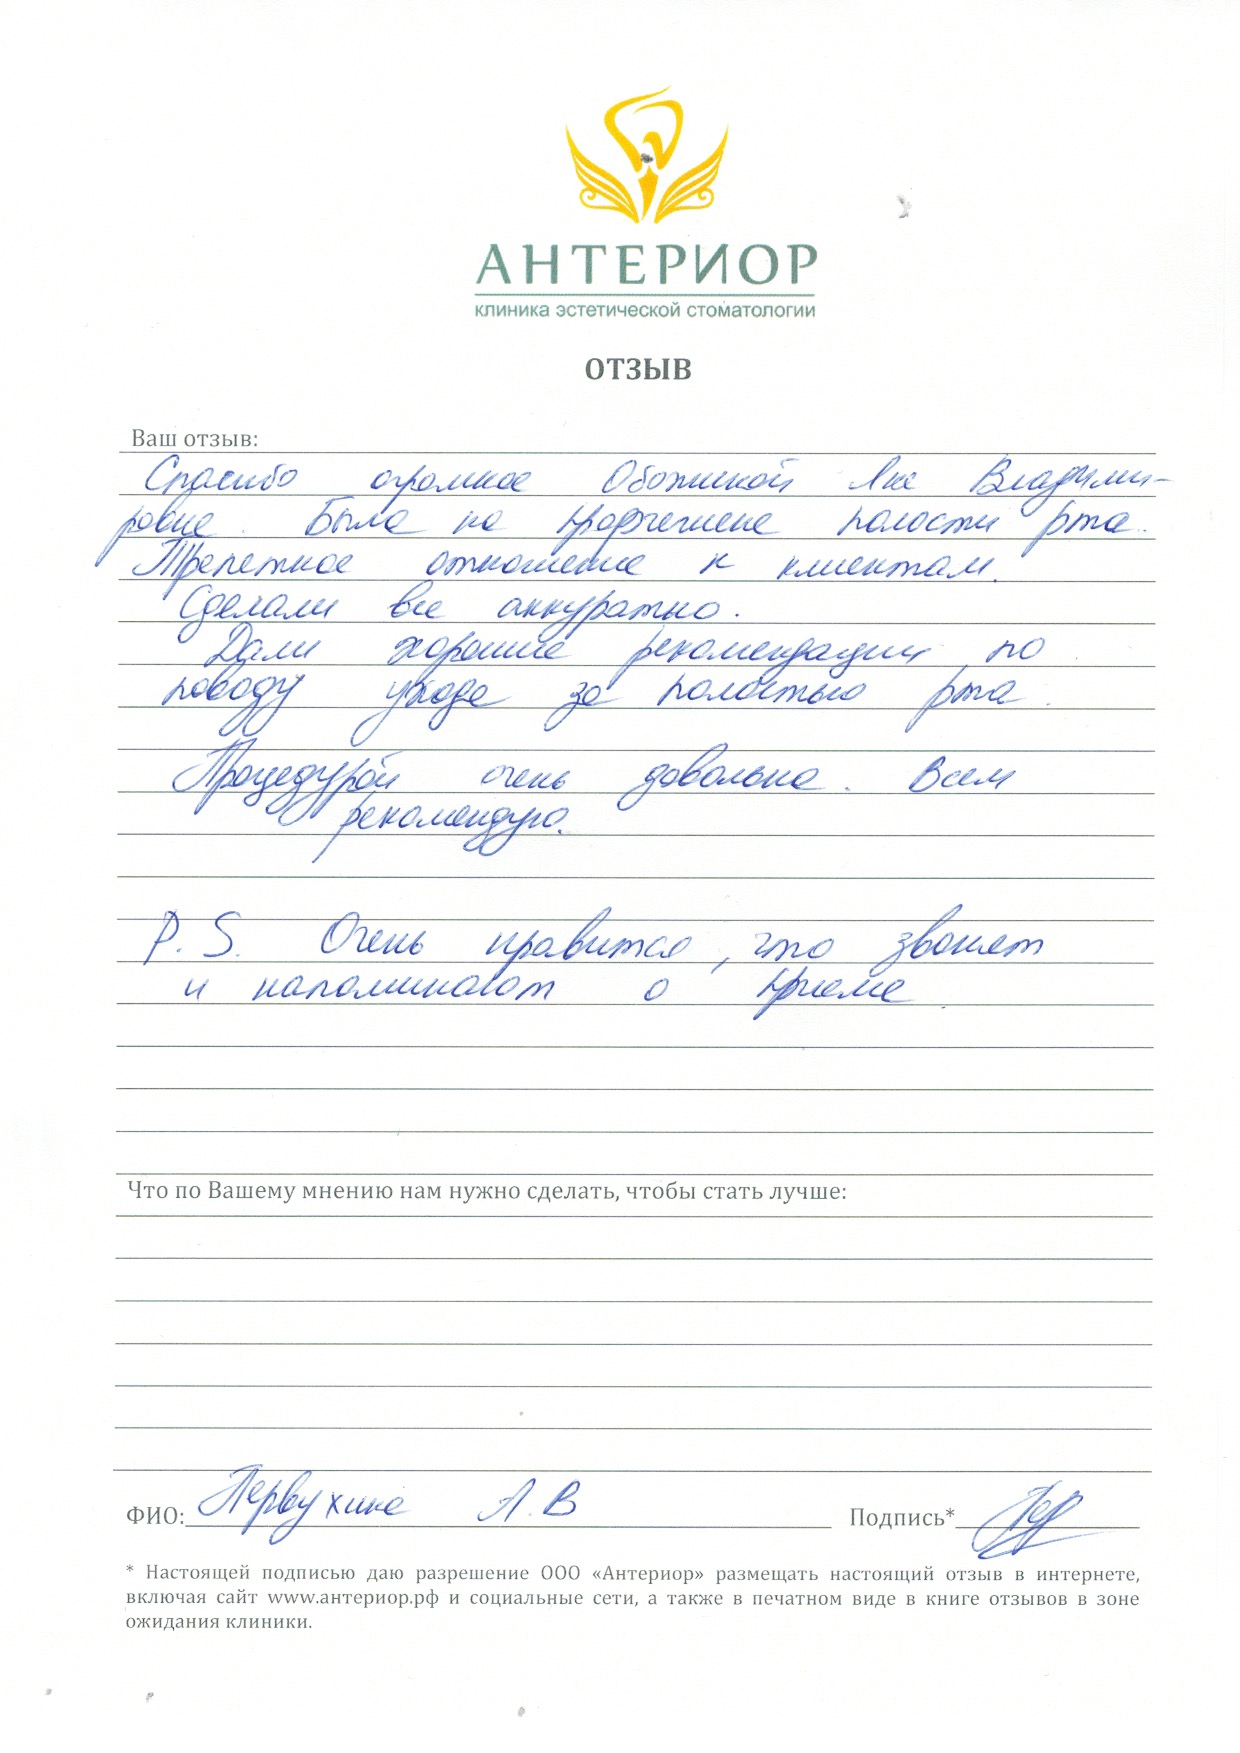 АНТЕРИОР
клиника эстетической стоматологии
ОТЗЫВ
Ваш отзыв:
Спасибо огромное Владими-
ровне. Была на полости рта.
Трепетное отношение к клиентам.
Сделали все аккуратно.
Дали хорошие рекомендации по
поводу ухода за полостью рта.
Процедурой очень довольна. Всем
рекомендую.
P.S. Очень нравится, что звонят
и напоминают о приеме.
Что по Вашему мнению нам нужно сделать, чтобы стать лучше:
ФИО: Первухина А.В Подпись*
* Настоящей подписью даю разрешение ООО «Антериор» размещать настоящий отзыв в интернете,
включая сайт www.антериор.рф и социальные сети, а также в печатном виде в книге отзывов в зоне
ожидания клиники.